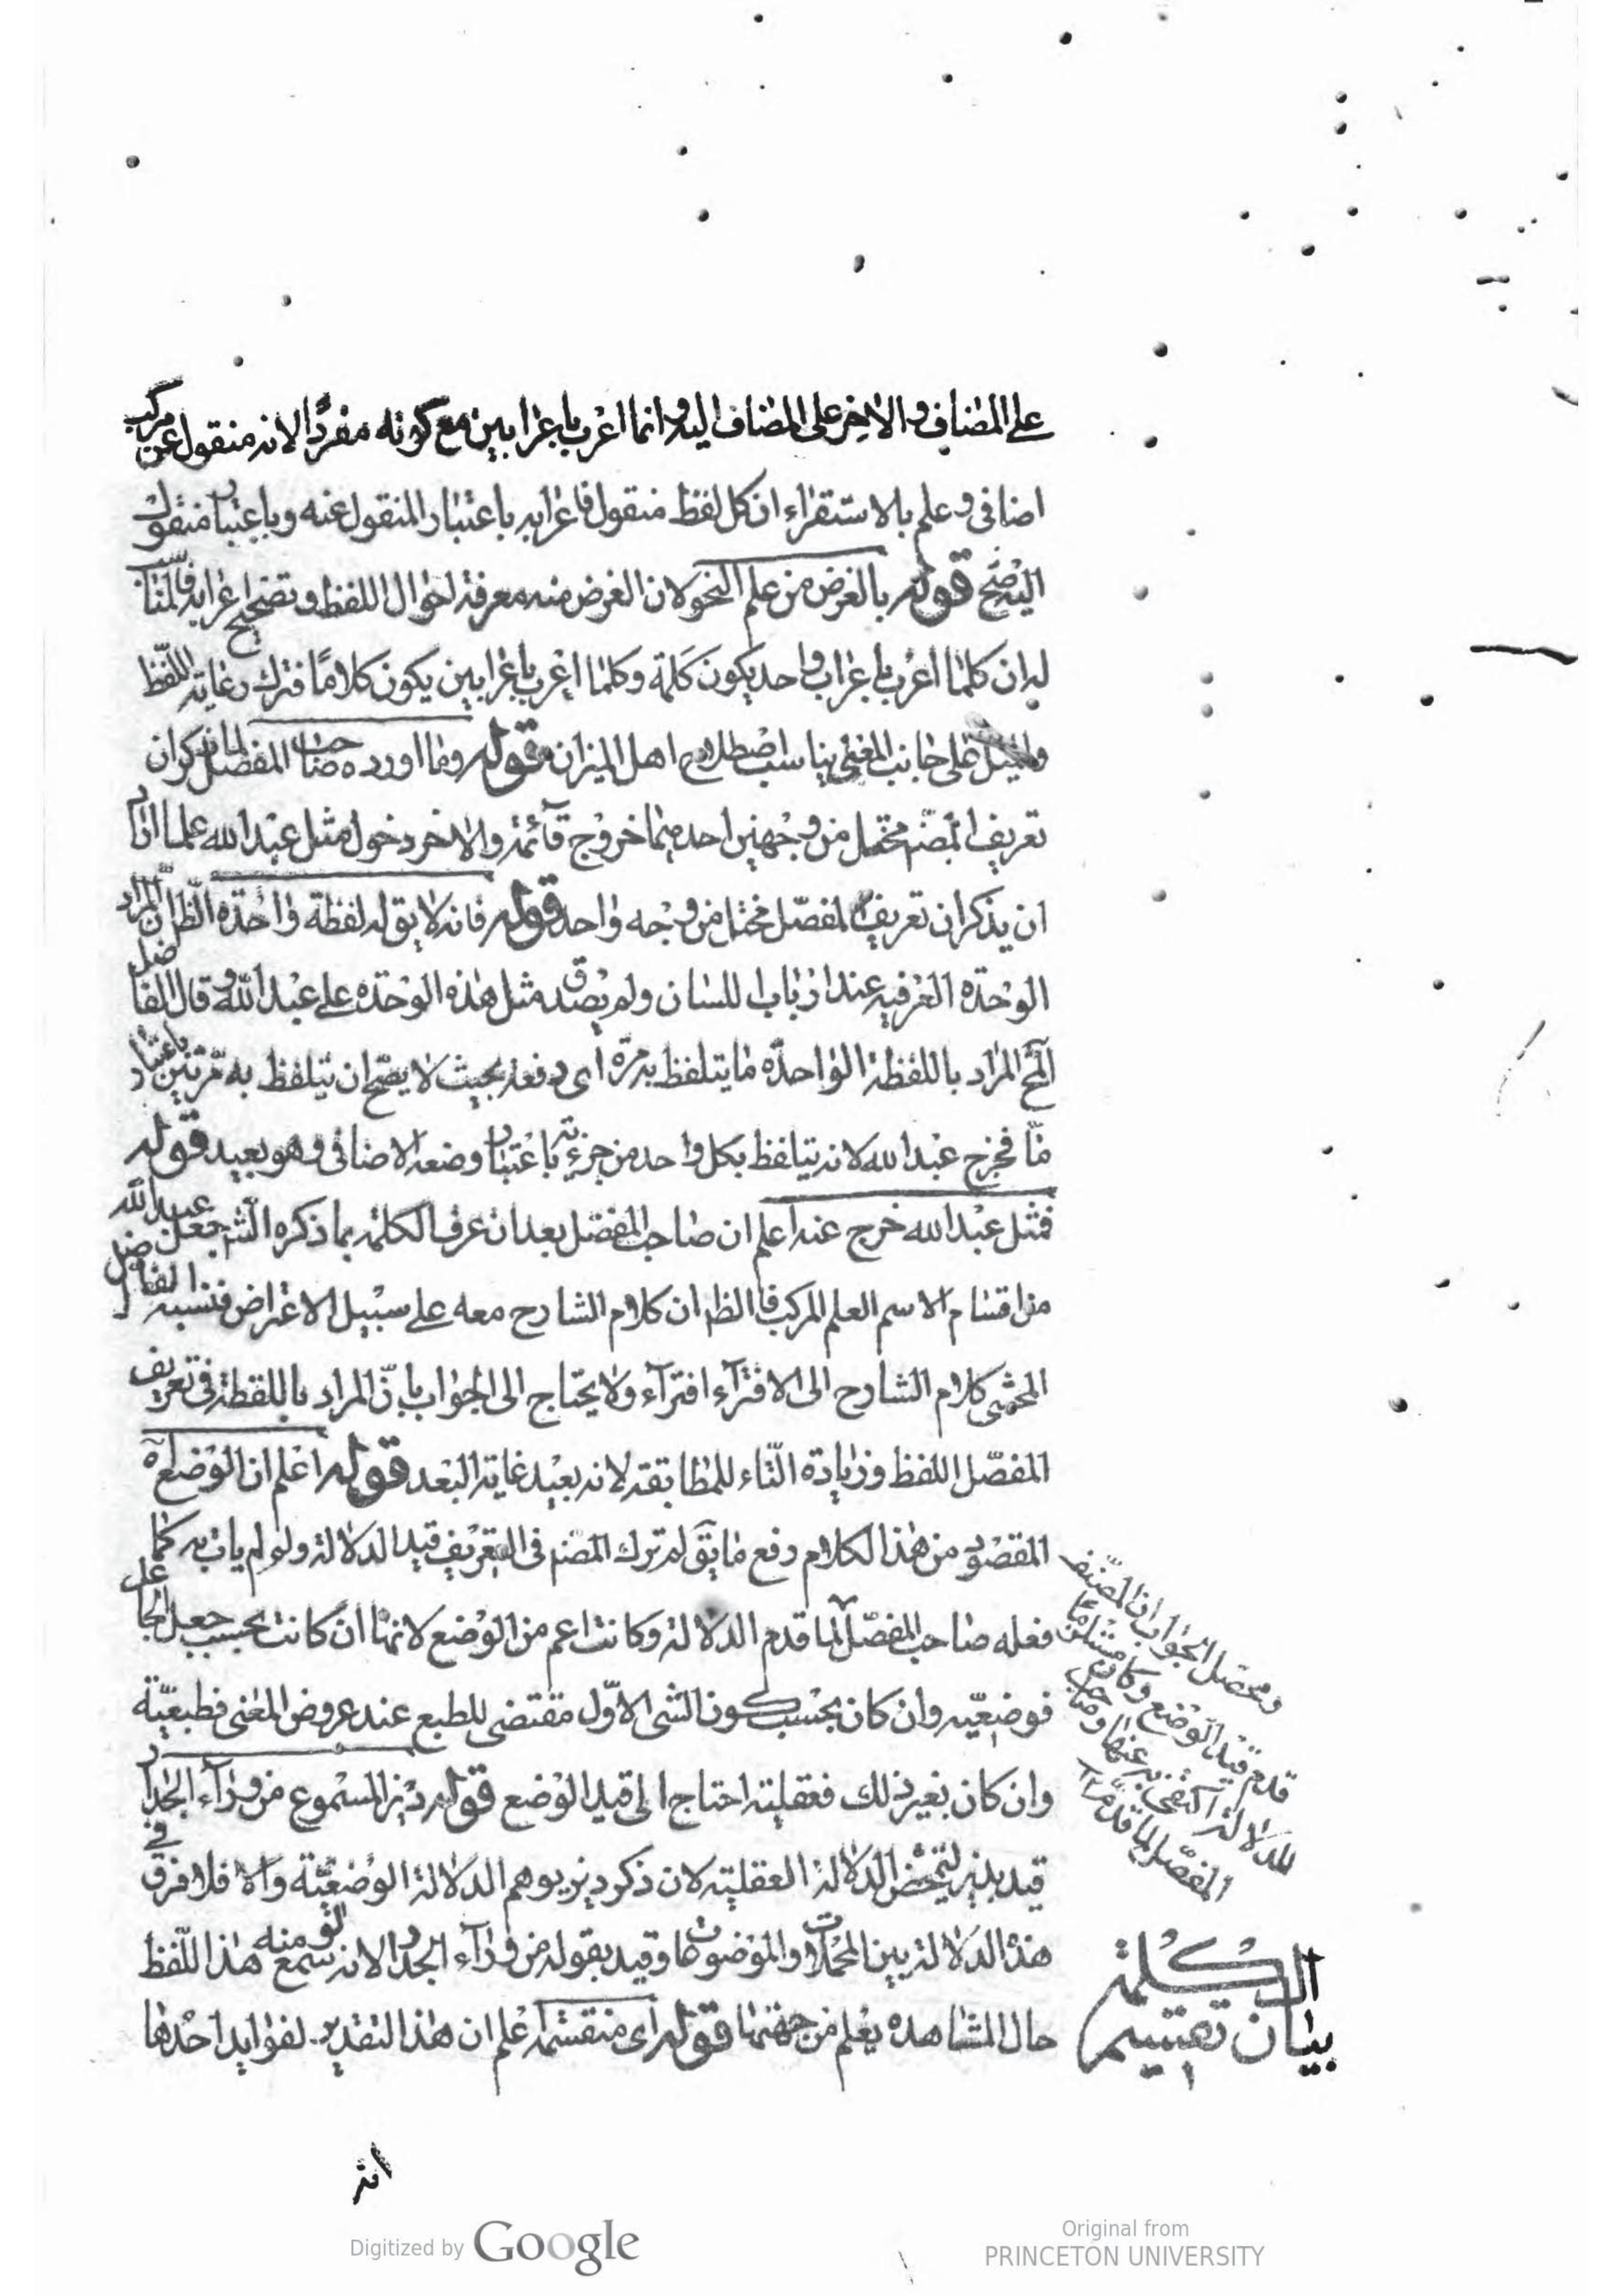 على المضاف والاخر على المضاف اليه وانما اعرب باعرابين مع كونه مفردًا لانه منقول عن مركب
اضافى وعلم بالاستقراء ان كل لفظ منقول فاعرابه باعتبار المنقول عنه وباعتبار منقول
اليه صح قوله بالغرض من علم النحو لان الغرض منه معرفة احوال اللفظ وتصحيح اعرابه فالمناسب
له ان كلما اعرب باعراب واحد يكون كلمة وكلما اعرب باعرابين يكون كلامًا فترك رعاية اللفظ
والميل على جانب المعنى يناسب اصطلاح اهل الميزان قوله وما اورده صاحب المفصل لما ذكر ان
تعريف المصنّف مختل من وجهين احدهما خروج قائمة والاخر دخول مثل عبد الله علما اراد
ان يذكر ان تعريف المفصّل مختل من وجه واحد قوله فانه لا يقال له لفظة واحدة الظ ان المراد
الوحدة العرفية عند ارباب اللسان ولم يصدق مثل هذه الوحدة على عبد الله وقال الفاضل
المح المراد باللفظة الواحدة ما يتلفظ به مرّة اى دفعة بحيث لا يصح ان يتلفظ به مرّتين باعتبار
مّا فخرج عبد الله لانه يتلفظ بكل واحد من جزئيه باعتبار وضعه الاضافى وهو بعيد قوله
فمثل عبد الله خرج عنه اعلم ان صاحب المفصّل بعد ان عرف الكلمة بما ذكره الشـ جعل عبد الله
من اقسام الاسم العلم المركب فالظ ان كلام الشارح معه على سبيل الاعتراض فنسبة الفاضل
المحشى كلام الشارح الى الافتراء افتراء ولا يحتاج الى الجواب بانّ المراد باللفظة فى تعريف
المفصّل اللفظ وزيادة التّاء للمطابقة لانه بعيد غاية البعد قوله اعلم ان الوضع اه
المقصود من هذا الكلام دفع ما يق لم ترك المصنف فى التعريف قيد الدلالة ولو لم يات به كما
فعله صاحب المفصّل لما قدم الدلالة وكانت اعم من الوضع لانها ان كانت بحسب جعل الجاعل
فوضعيّة وان كان بحسب كون الشى الاوّل مقتضى للطبع عند عروض المعنى فطبعيّة
وان كان بغير ذلك فعقلية احتاج الى قيد الوضع قوله ديز المسموع من وراء الجدار
قيد بديز ليتمحّض الدلالة العقلية لان ذكر زيد يوهم الدلالة الوضعيّة والا فلا فرق فى
هذه الدلالة بين المهملات والموضوعات وقيد بقوله من وراء الجدار لانه لو سمع منه هذا اللفظ
حال المشاهدة يعلم من جهتها قوله اى منقسمة اعلم ان هذا التقدير لفوايد احدها
ومحصل الجواب ان المصنّف
قدم قيد الوضع وكان مستلزمًا
للدلالة اكتفى به عنها وصاحب
المفصّل لما قدمها
بيان تقسيم
الكلمة
انه
Digitized by Google
Original from
PRINCETON UNIVERSITY